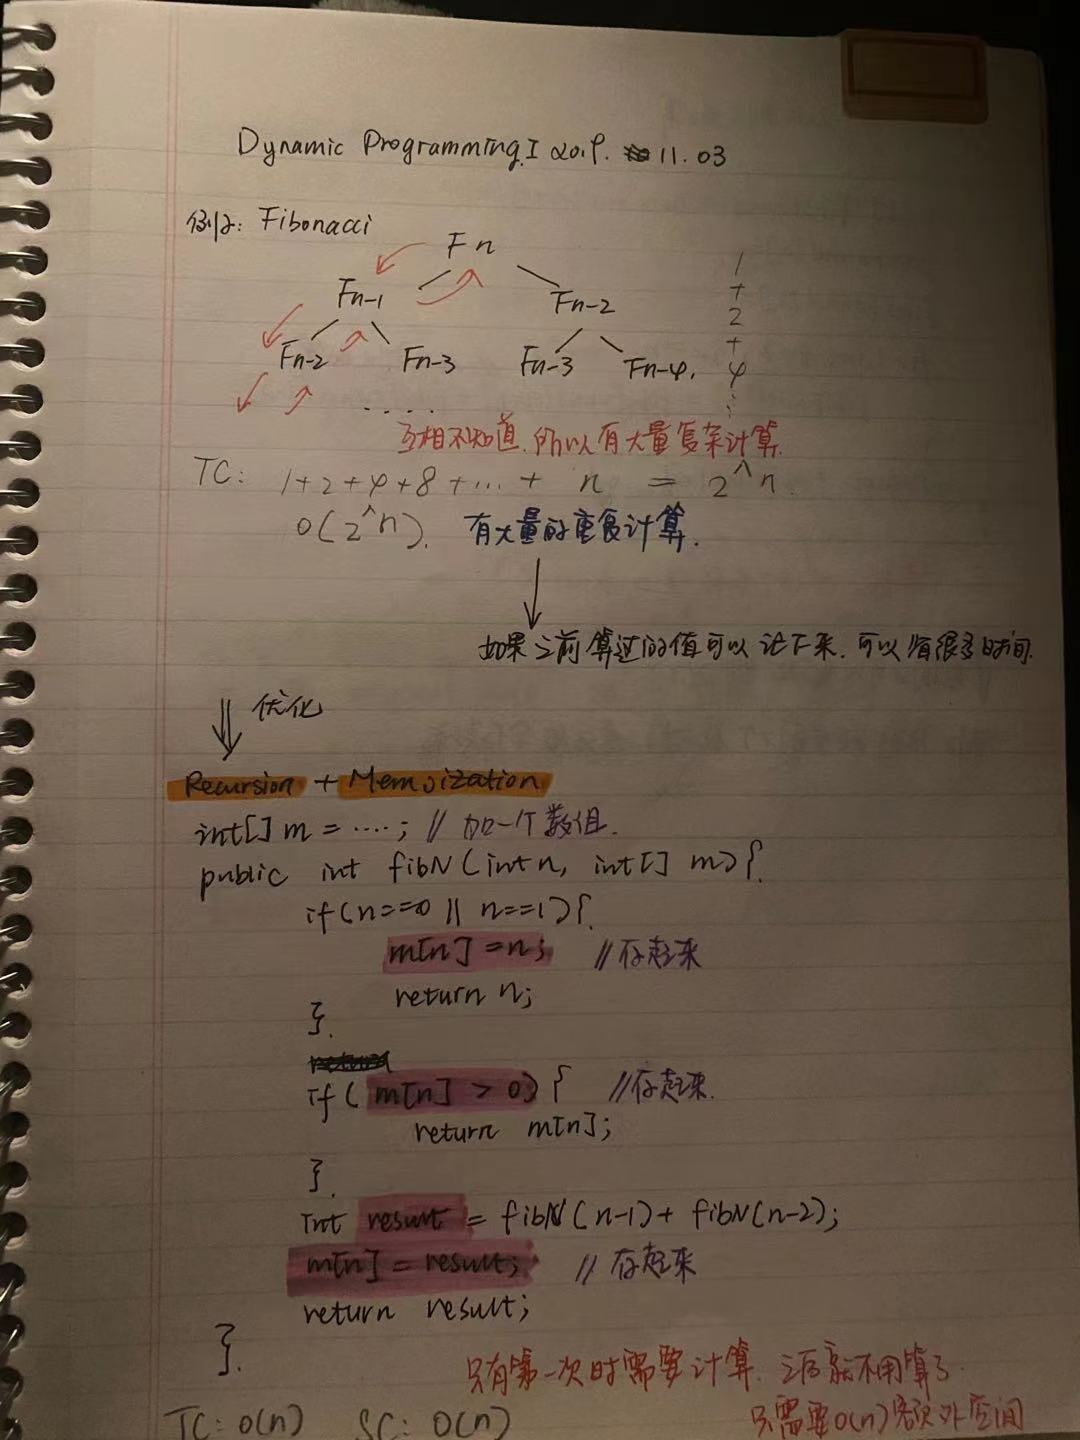 Dynamic Programming I 2019. 11.03
例子: Fibonacci
Fn
Fn-1 Fn-2
Fn-2 Fn-3 Fn-3 Fn-4.
1
+
2
+
4
⋮
.....
互相不知道,所以有大量复杂计算
TC: 1+2+4+8+...+ n = 2^n.
O(2^n). 有大量的重复计算.
如果之前算过的值可以记下来.可以省很多时间.
优化
Recursion + Memoization
int[] m = ....; // 加一个数组.
public int fibN(int n, int[] m){.
if(n==0 || n==1){.
m[n] = n; //存起来
return n;
}.
if( m[n] > 0) { //存起来.
return m[n];
}.
Int result = fibN(n-1)+ fibN(n-2);
m[n] = result; // 存起来
return result;
}.
只有第一次时需要计算.之后就不用算了.
TC: O(n) SC: O(n) 只需要O(n)额外空间